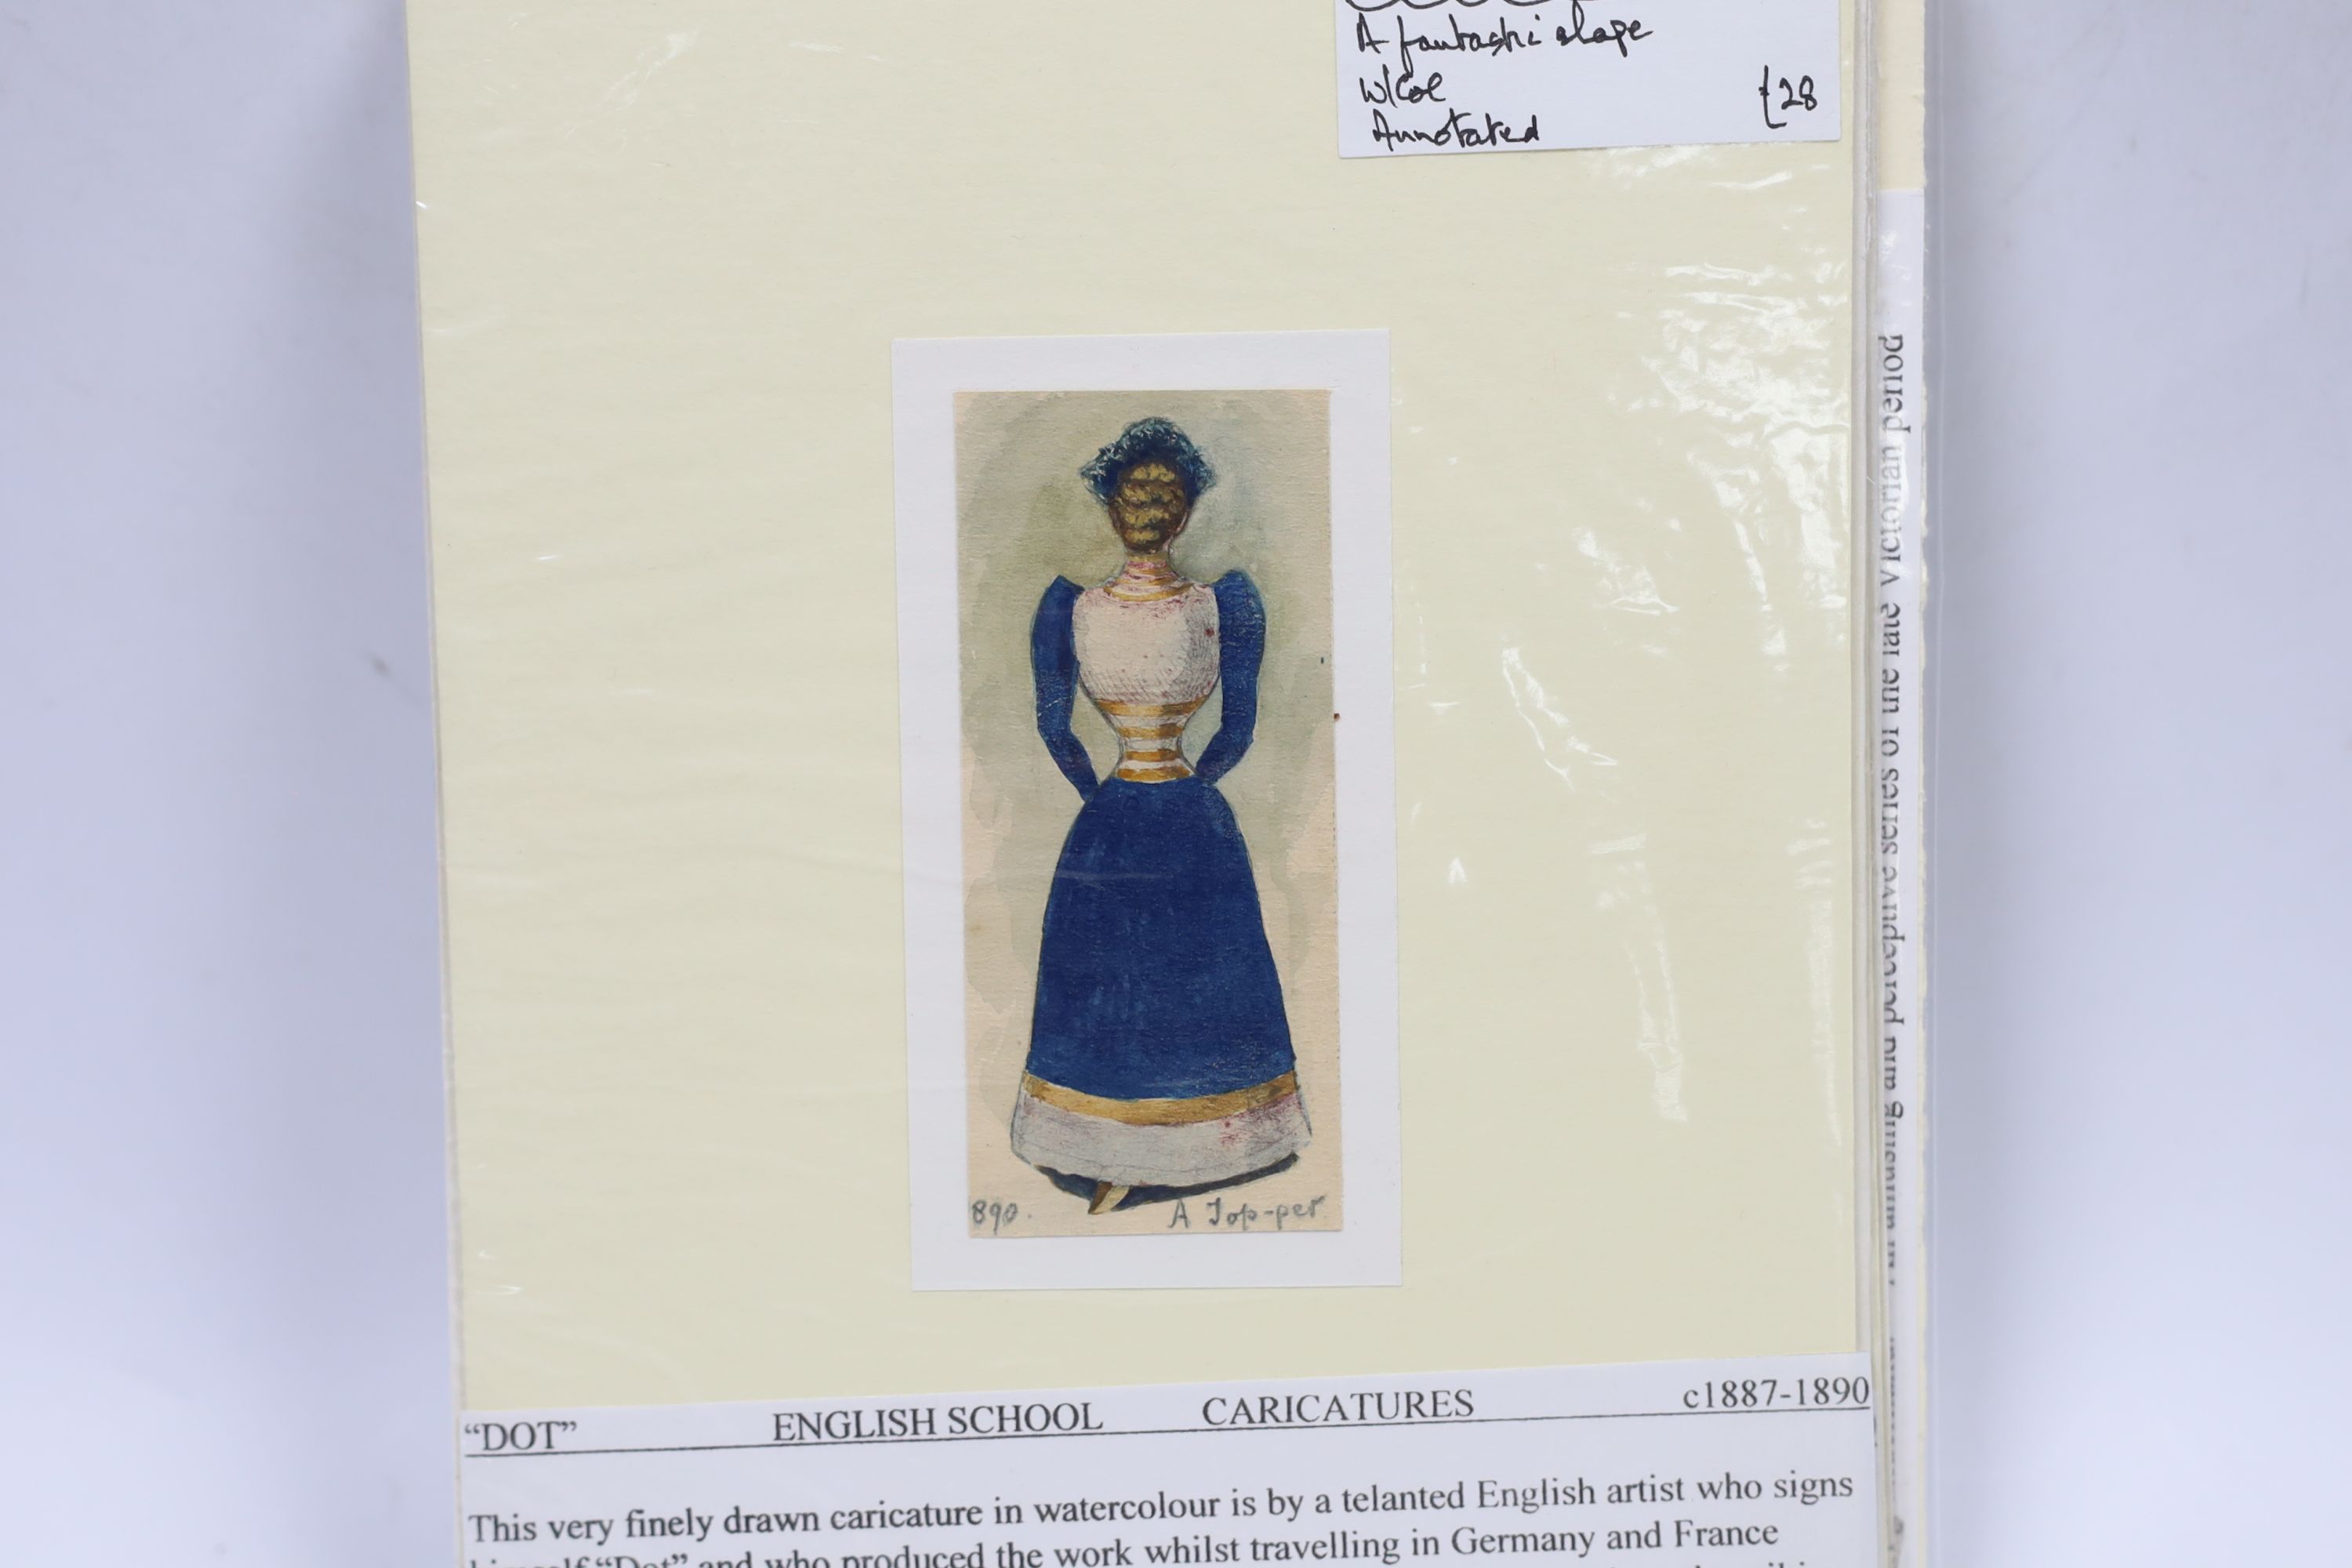 A fantastic shape
W/Col £28
Annotated
890. A Top-per
“DOT” ENGLISH SCHOOL CARICATURES c1887-1890
This very finely drawn caricature in watercolour is by a telanted English artist who signs
himself “Dot” and who produced the work whilst travelling in Germany and France
amusing and perceptive series of the late Victorian period